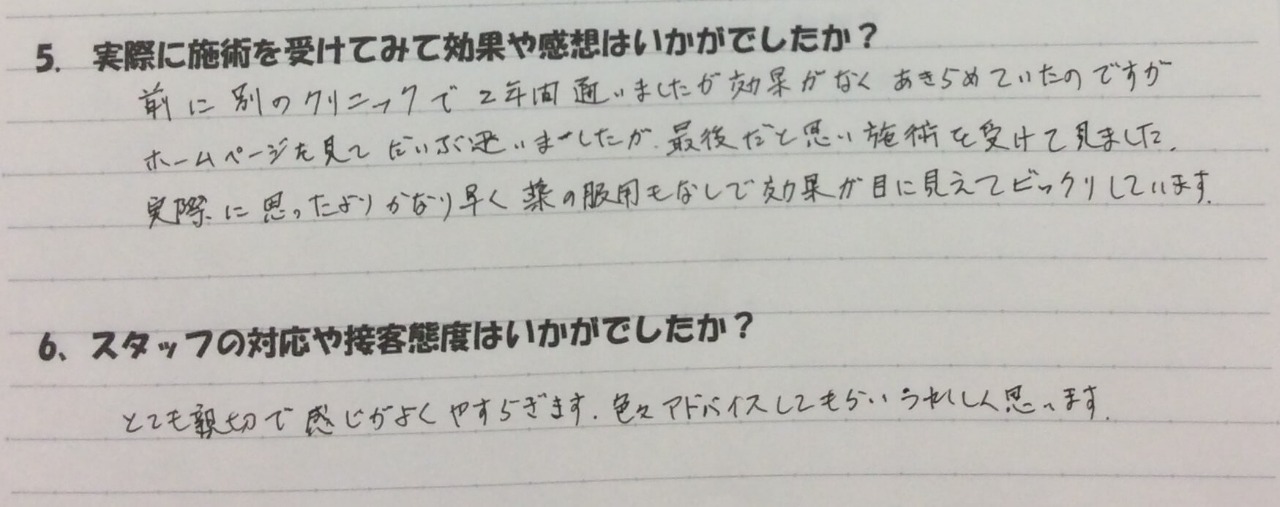 5. 実際に施術を受けてみて効果や感想はいかがでしたか？
前に別のクリニックで2年間通いましたが効果がなくあきらめていたのですが
ホームページを見てだいぶ迷いましたが、最後だと思い施術を受けて見ました。
実際に思ったよりかなり早く薬の服用もなしで効果が目に見えてビックリしています。
6、スタッフの対応や接客態度はいかがでしたか？
とても親切で感じがよくやすらぎます。色々アドバイスしてもらいうれしく思います。